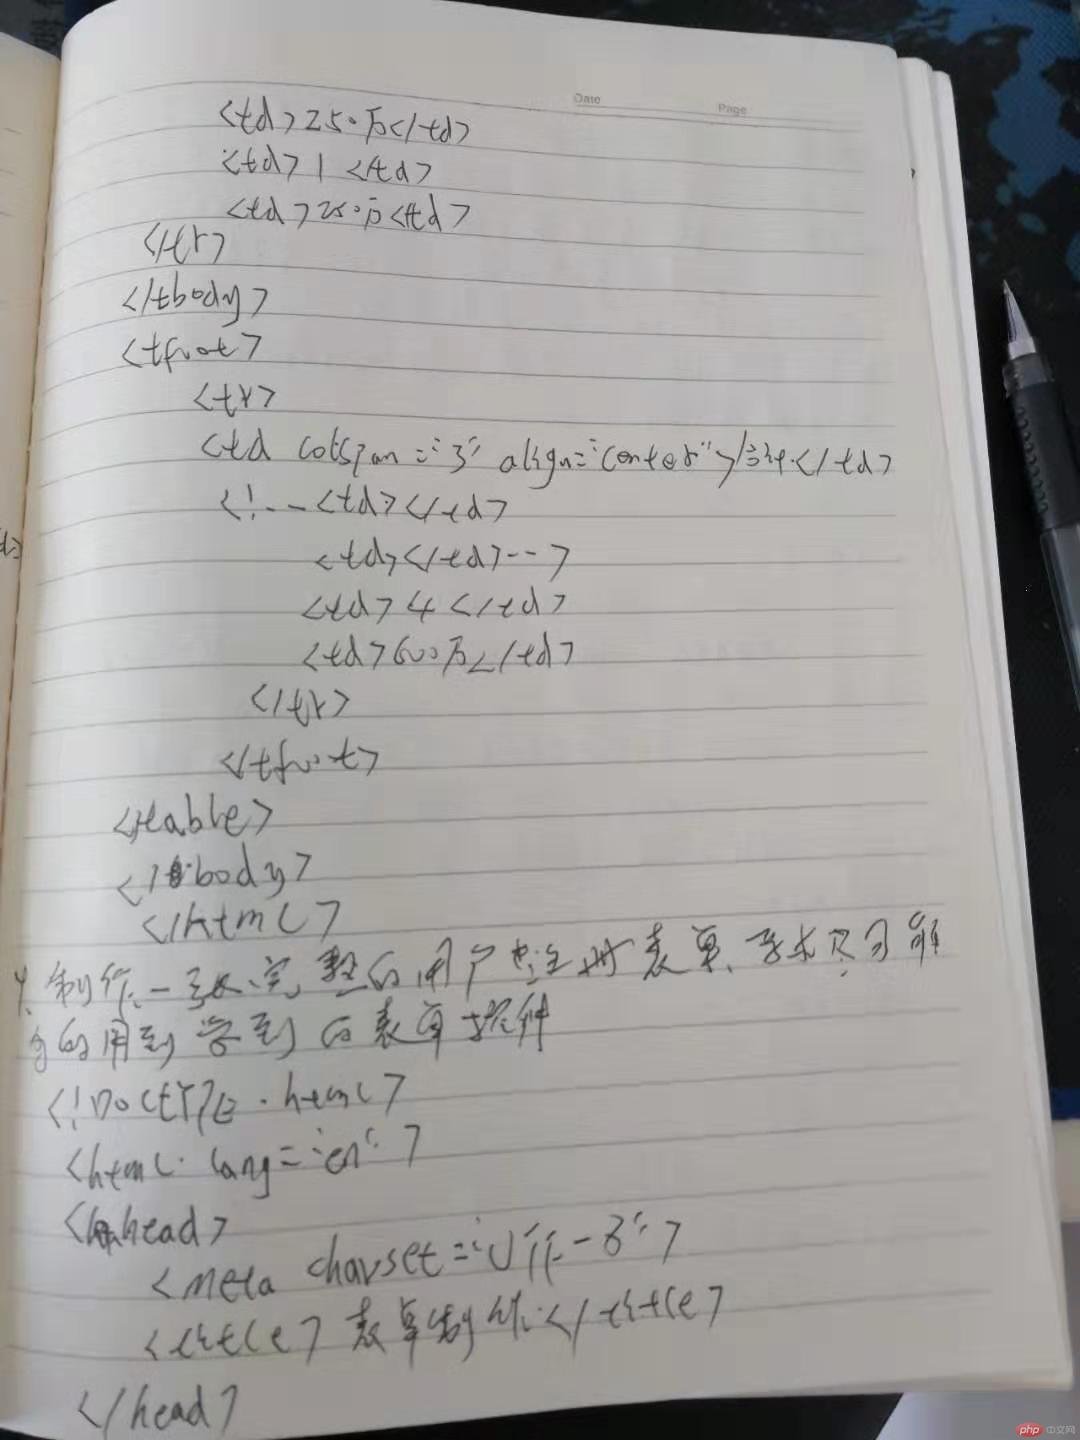 Date Page
<td>250万</td>
<td>1<td>
<td>250万<td>
</tr>
</tbody>
<tfoot>
<tr>
<td colspan="3" align="center">总计</td>
<!--<td></td>
<td></td>-->
<td>4</td>
<td>600万</td>
</tr>
</tfoot>
</table>
</body>
</html>
4.制作一张完整的用户注册表单,要求尽可能
多的用到学到的表单控件
<!DOCTYPE html>
<html lang="en">
<head>
<meta charset="UTF-8">
<title>表单制作</title>
</head>
php 中文网